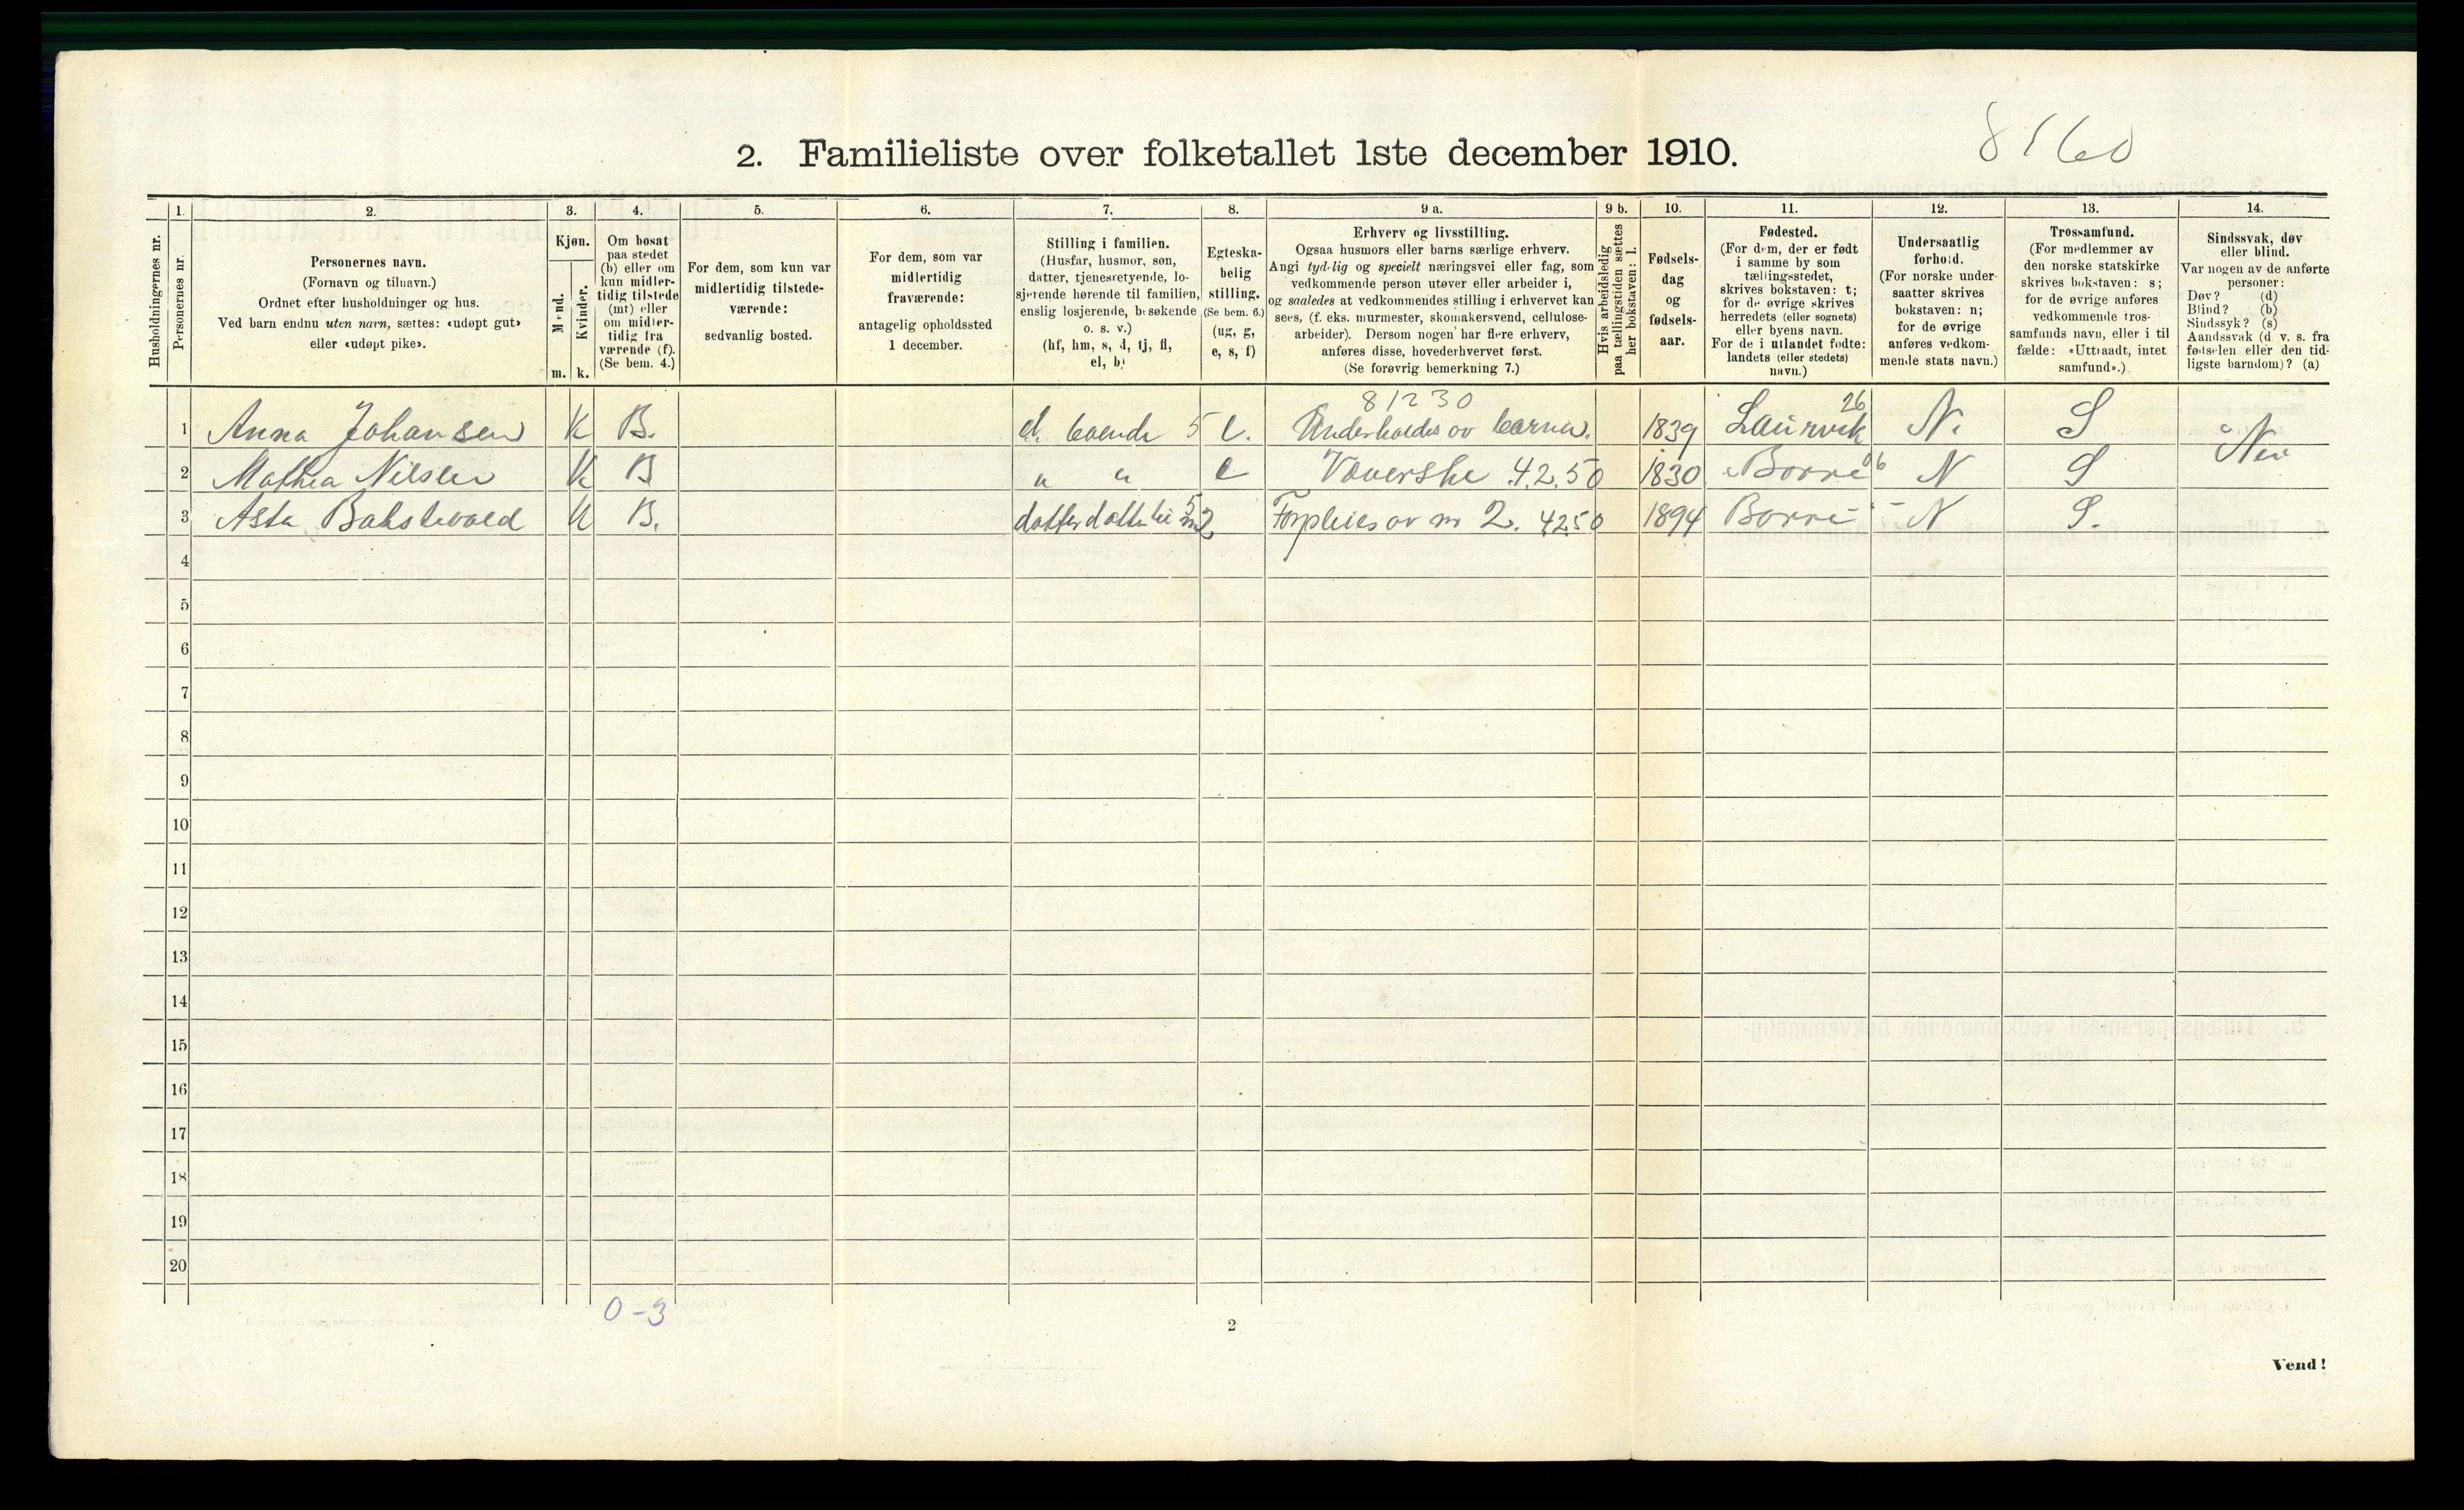 8160
2. Familieliste over folketallet 1ste december 1910.
Husholdningernes nr.
1.
Personernes nr.
2.
Personernes navn.
(Fornavn og tilnavn.)
Ordnet efter husholdninger og hus.
Ved barn endnu uten navn, sættes: «udøpt gut»
eller «udøpt pike».
3.
Kjøn.
Mænd.
Kvinder.
m. k.
4.
Om bosat
paa stedet
(b) eller om
kun midler-
tidig tilstede
(mt) eller
om midler-
tidig fra
værende (f).
(Se bem. 4.)
5.
For dem, som kun var
midlertidig tilstede-
værende:
sedvanlig bosted.
6.
For dem, som var
midlertidig
fraværende:
antagelig opholdssted
1 december.
7.
Stilling i familien.
(Husfar, husmor, søn,
datter, tjenestetyende, lo-
sjerende hørende til familien,
enslig losjerende, besøkende
o. s. v.)
(hf, hm, s, d, tj, fl,
el, b)
8.
Egteska-
belig
stilling.
(Se bem. 6.)
(ug, g,
e, s, f)
9 a.
Erhverv og livsstilling.
Ogsaa husmors eller barns særlige erhverv.
Angi tydelig og specielt næringsvei eller fag, som
vedkommende person utøver eller arbeider i,
og saaledes at vedkommendes stilling i erhvervet kan
sees, (f. eks. murmester, skomakersvend, cellulose-
arbeider). Dersom nogen har flere erhverv,
anføres disse, hovederhvervet først.
(Se forøvrig bemerkning 7.)
9 b.
Hvis arbeidsledig
paa tællingstiden sættes
her bokstaven: l.
10.
Fødsels-
dag
og
fødsels-
aar.
11.
Fødested.
(For dem, der er født
i samme by som
tællingsstedet,
skrives bokstaven: t;
for de øvrige skrives
herredets (eller sognets)
eller byens navn.
For de i utlandet fødte:
landets (eller stedets)
navn.)
12.
Undersaatlig
forhold.
(For norske under-
saatter skrives
bokstaven: n;
for de øvrige
anføres vedkom-
mende stats navn.)
13.
Trossamfund.
(For medlemmer av
den norske statskirke
skrives bokstaven: s;
for de øvrige anføres
vedkommende tros-
samfunds navn, eller i til
fælde: «Uttraadt, intet
samfund».)
14.
Sindssvak, døv
eller blind.
Var nogen av de anførte
personer:
Døv? (d)
Blind? (b)
Sindssyk? (s)
Aandssvak (d. v. s. fra
fødselen eller den tid-
ligste barndom)? (a)
81230 26
1 Anna Johansen K B. el. boende 5 e. Underholdes av barna. 1839 Laurvik N. S
Nei
2 Mathea Nilsen K B " " e Væverske 4.2.50 1830 Borre N S
3 Asta Bakstevold K B. datterdatter til nr 2 Forpleies av nr 2. 4250 1894 Borre N S.
4
5
6
7
8
9
10
11
12
13
14
15
16
17
18
19
20
0-3
2
Vend!